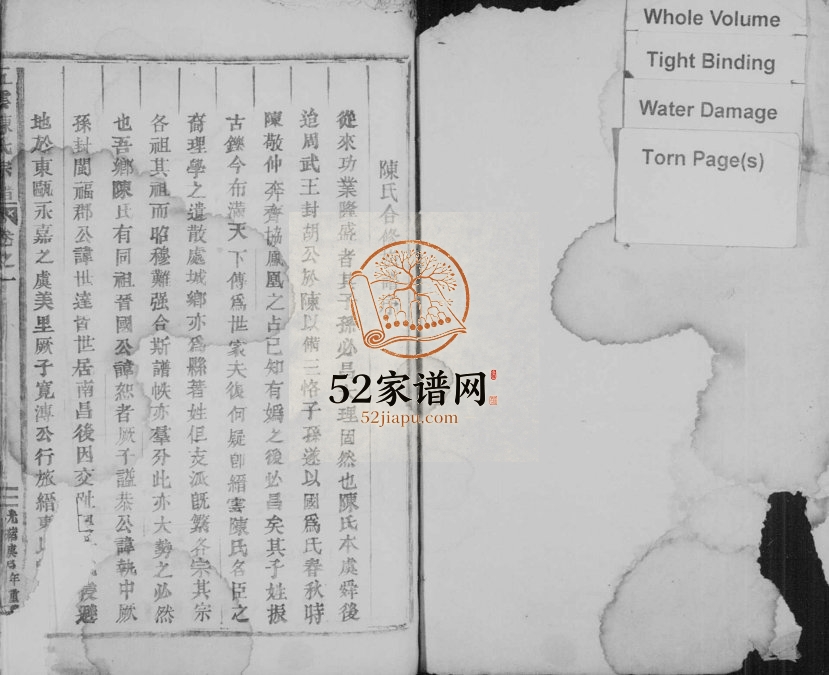 陳氏合修
從來功業隆盛者其子孫必昌 理固然也陳氏本虞舜後
迨周武王封胡公於陳以備三恪子孫遂以國爲氏春秋時
陳敬仲奔齊協鳳凰之占已知有嬀之後必昌矣其子姓振
古鑠今布滿天下傳爲世家夫復何疑卽縉雲陳氏名臣之
裔理學之遺散處城鄉亦爲縣著姓但支派旣繁各宗其宗
各祖其祖而昭穆難强合斯譜帙亦羣分此亦大勢之必然
也吾鄉陳氏有同祖晉國公諱恕者厥子諡恭公諱執中厥
孫封閩福郡公諱世達 世居南昌後因交趾 後遷
地於東甌永嘉之虞美里厥子寬溥公行旅縉東
五雲陳氏宗譜 卷之一
光緒 年重
Whole Volume
Tight Binding
Water Damage
Torn Page(s)
52家谱网
52jiapu.com